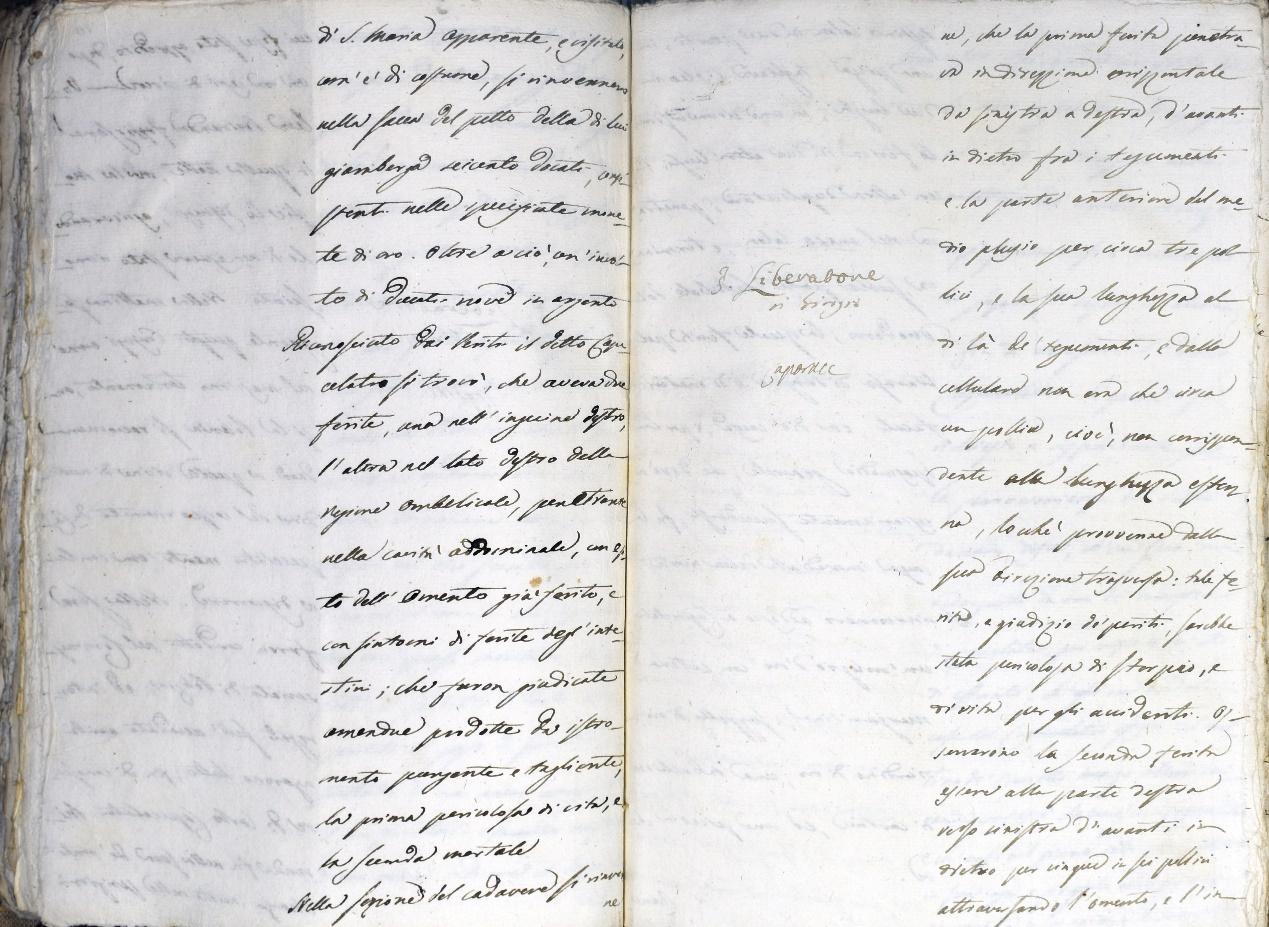 di S. Maria apparente, e visitato,
com'è di costume, si rinvennero
nella sacca del petto della di lui
giamberga seicento docati, consi-
stenti nelle specificate mone-
te di oro. Oltre a ciò, un'
to di Ducati nove in argento
Riconosciuto dai Periti il detto Cape-
celatro si trovò, che aveva due
ferite, una nell'inguine destro,
l'altra nel lato destro della
regione ombelicale, penetrante
nella cavità addominale, con es-
to dell'Omento già ferito, e
con sintomi di ferite degl'inte-
stini; che furon giudicate
amendue prodotte da istro-
mento pungente e tagliente,
la prima pericolosa di vita, e
la seconda mortale
Nella sezione del cadavere si rinven
ne
Liberatore
si dirigeva
ne, che la prima ferita penetra-
va in direzzione orizzontale
da sinistra a destra, d'avanti
in dietro fra i tegumenti
e la parte anteriore del me-
dio per circa tre pol-
lici, e la sua lunghezza al
di là de' tegumenti, e dalla
cellulare non era che circa
un pollice, cioè, non corrispon-
dente alla lunghezza ester-
na, locchè provvenne dalla
sua direzione trasversa: tale fe-
rita, a giudizio de' periti, sarebbe
stata pericolosa di storpio, e
di vita per gli accidenti. Os-
servarono la seconda ferita
essere alla parte destra
verso sinistra d'avanti in
dietro per cinque in sei pollici
attraversando l'omento, e l'in-